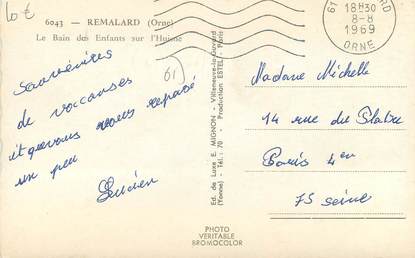 10€
6043 - REMALARD (Orne)
Le Bain des Enfants sur l'Huisne
61
ARD
18H30
8-8
1969
ORNE
61)
Souvenires
de voccanses
et que vous vous reposé
un peu
Lucien
Ed. de Luxe E. MIGNON - Villeneuve-la-Guyard
(Yonne) - Tél. : 70 - Production ESTEL - Paris
Madame Michelle
14 rue du Platre
Paris 4em
75 seine
PHOTO
VERITABLE
BROMOCOLOR